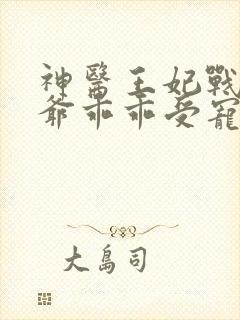 神醫王妃戰
爺乖乖受寵
大島司